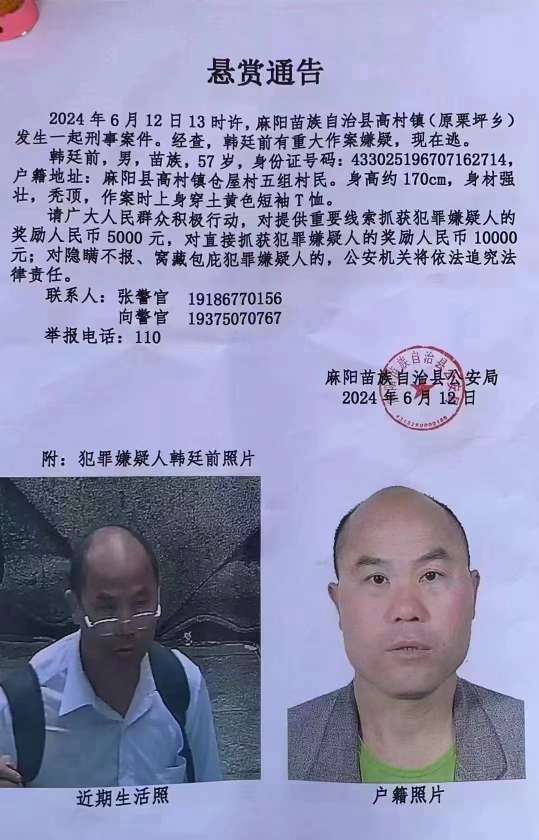 悬赏通告
2024年6月12日13时许，麻阳苗族自治县高村镇（原栗坪乡）
发生一起刑事案件。经查，韩廷前有重大作案嫌疑，现在逃。
韩廷前，男，苗族，57岁，身份证号码：433025196707162714，
户籍地址：麻阳县高村镇仓屋村五组村民。身高约170cm，身材强
壮，秃顶，作案时上身穿土黄色短袖T恤。
请广大人民群众积极行动，对提供重要线索抓获犯罪嫌疑人的
奖励人民币5000元，对直接抓获犯罪嫌疑人的奖励人民币10000
元；对隐瞒不报、窝藏包庇犯罪嫌疑人的，公安机关将依法追究法
律责任。
联系人：张警官 19186770156
向警官 19375070767
举报电话：110
麻阳苗族自治县公安局
2024年6月12日
附：犯罪嫌疑人韩廷前照片
近期生活照
户籍照片